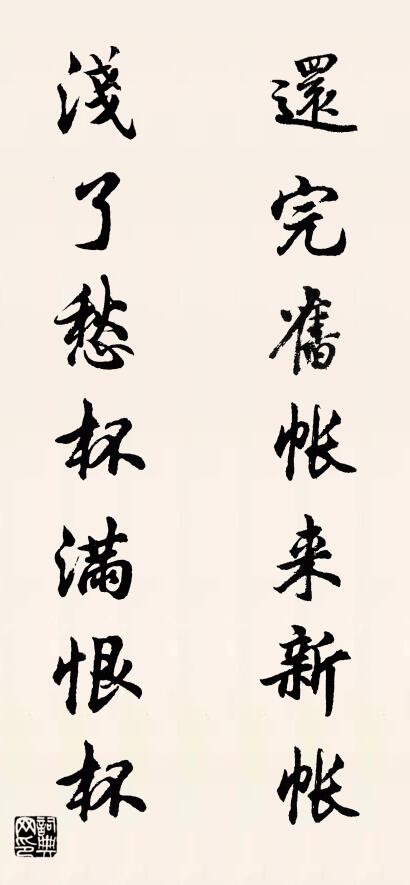 還完舊帐来新帐
淺了愁杯满恨杯
詞典网印